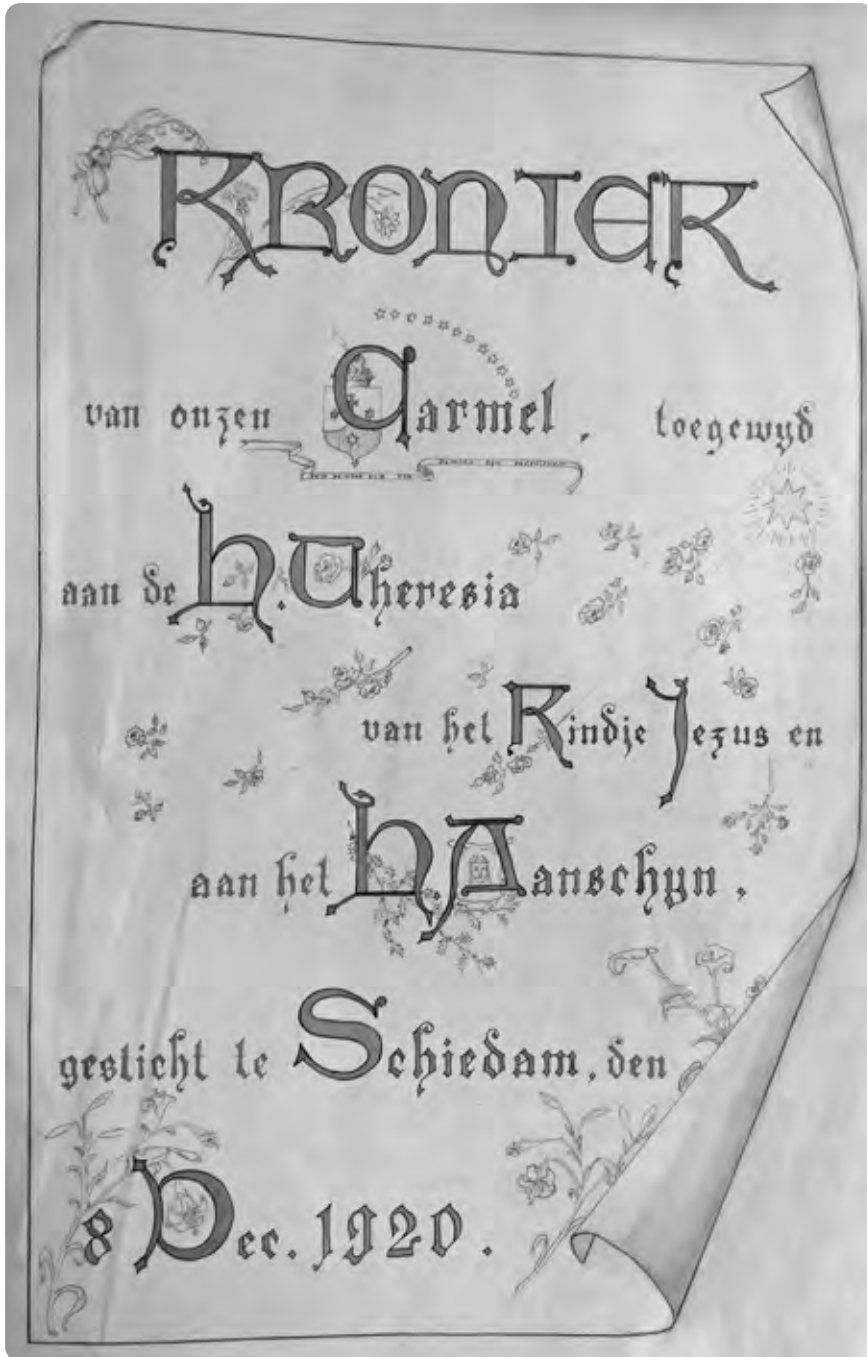 KRONIEK
van onzen Carmel, toegewyd
aan de H. Theresia
van het Kindje Jezus en
aan het H Aanschyn,
gesticht te Schiedam, den
8 Dec. 1920.